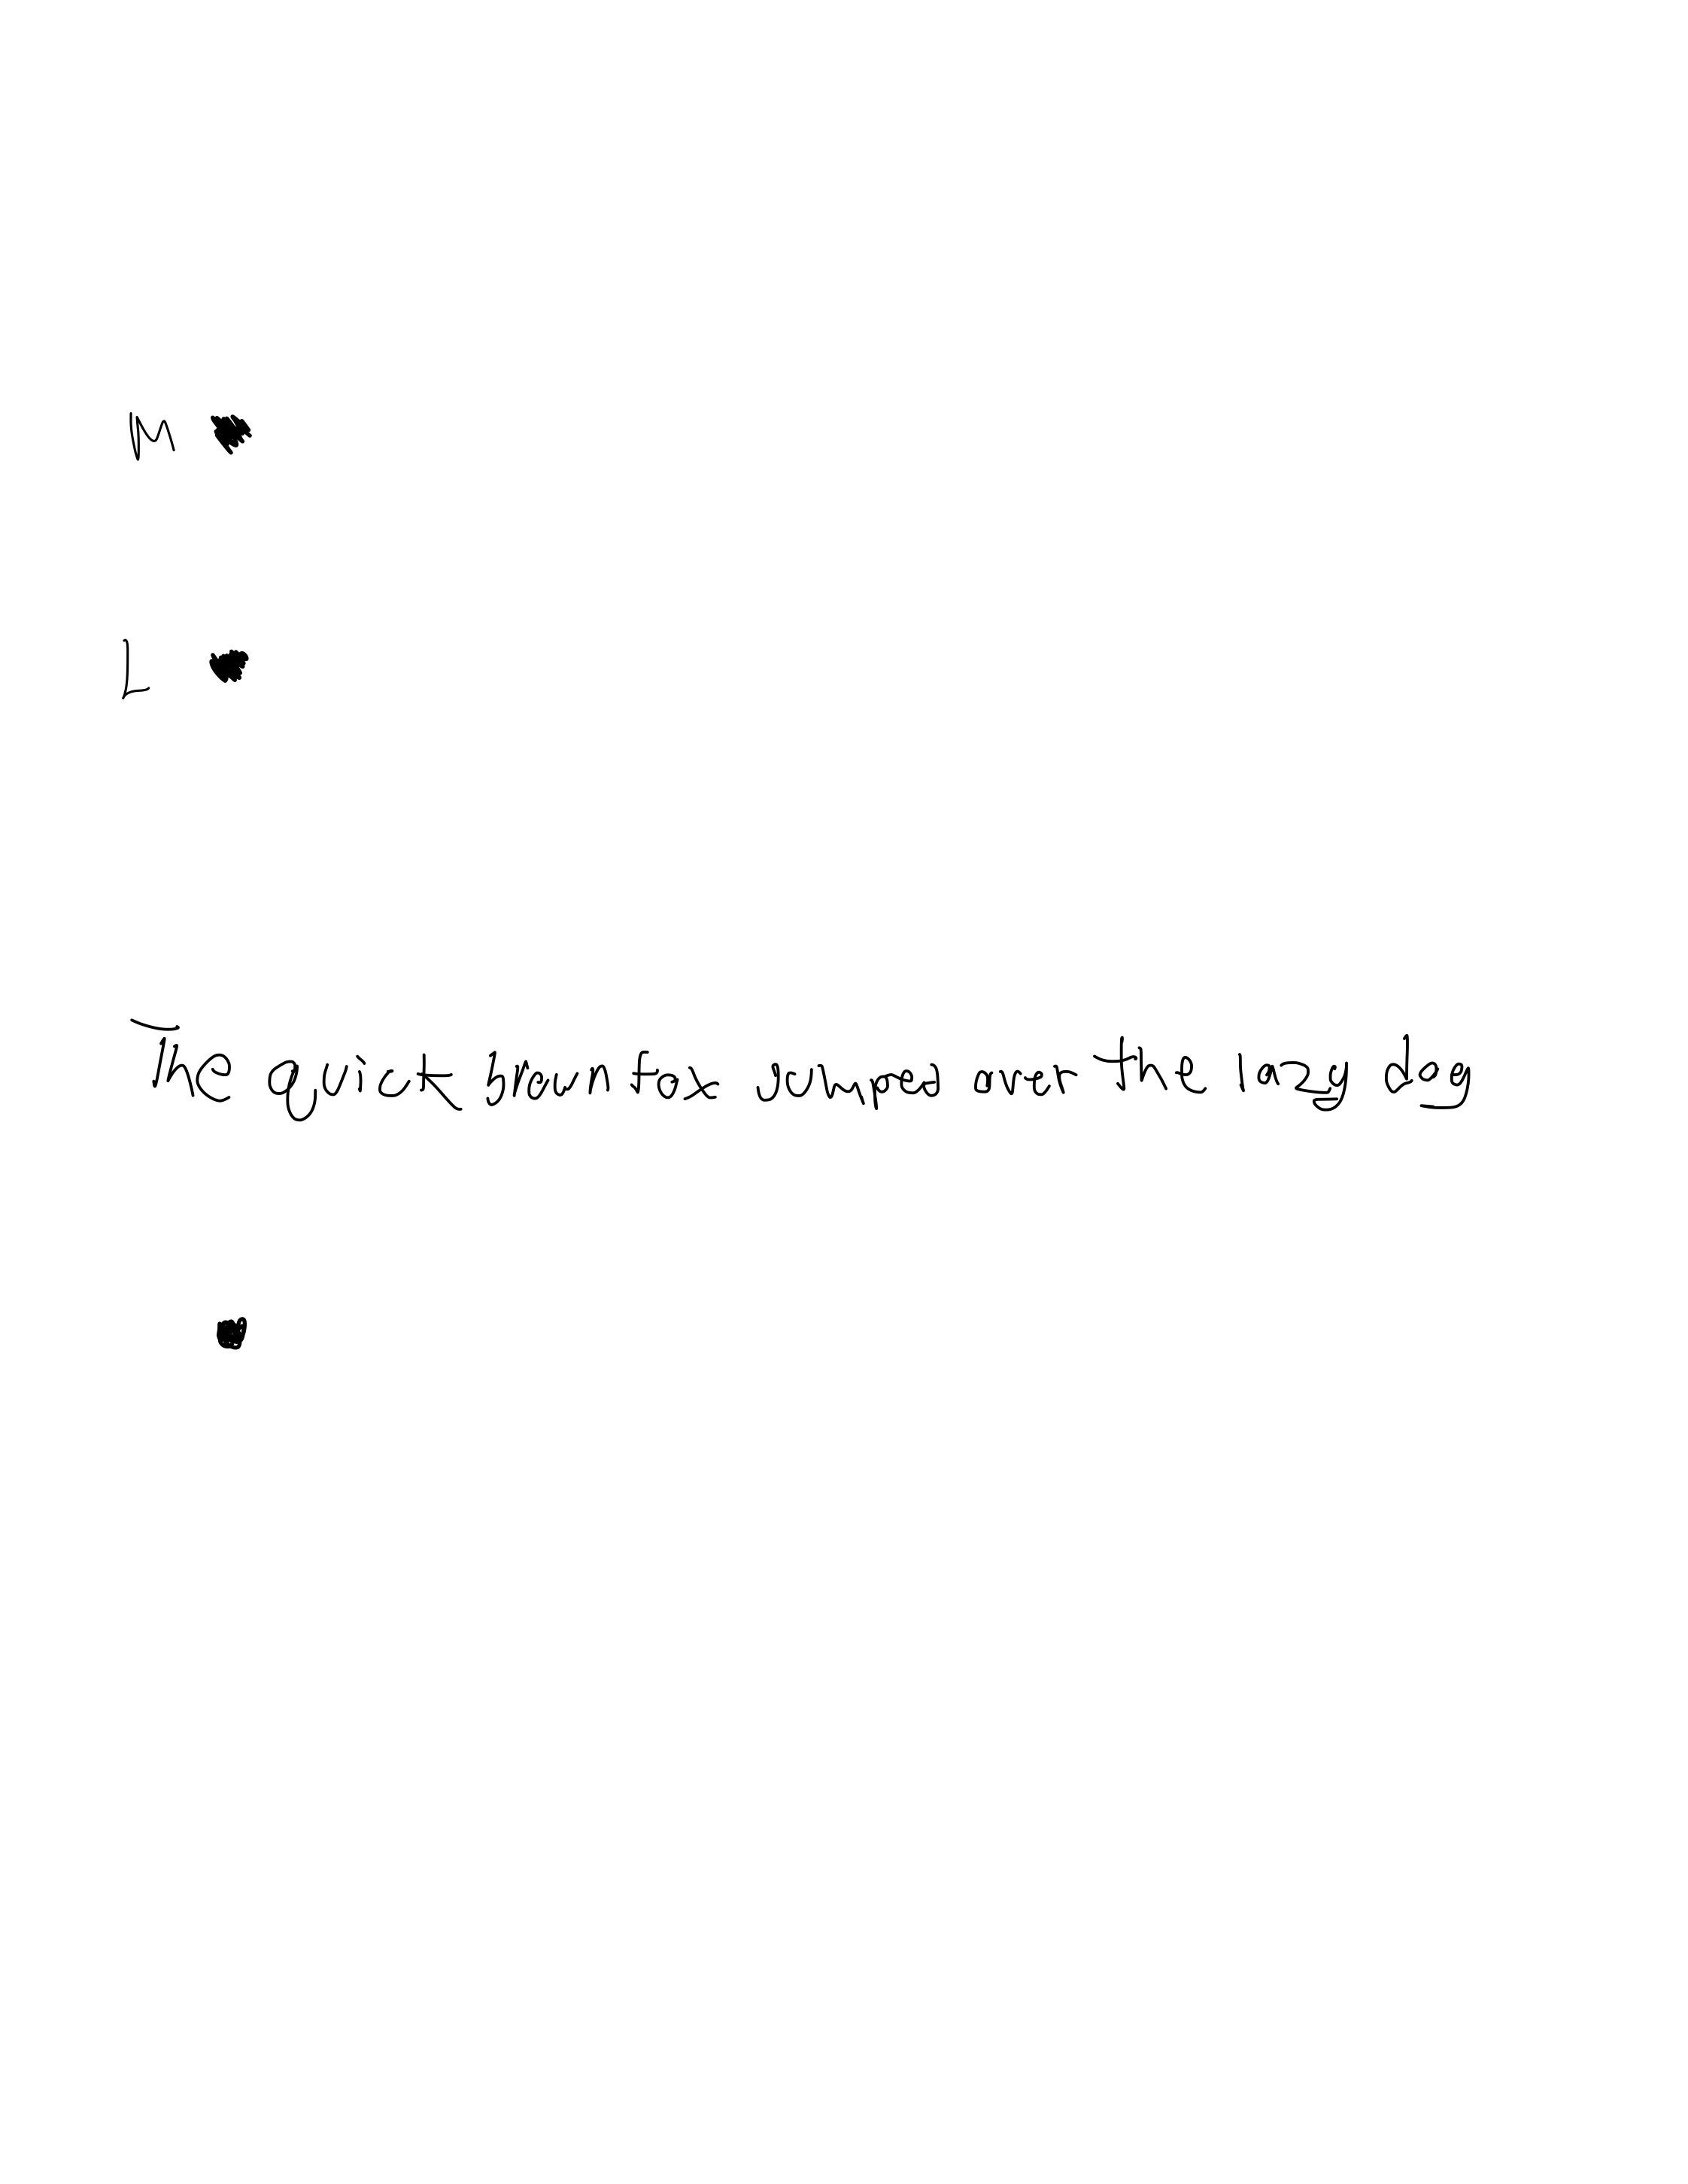 M
L
The quick brown fox jumps over the lazy dog